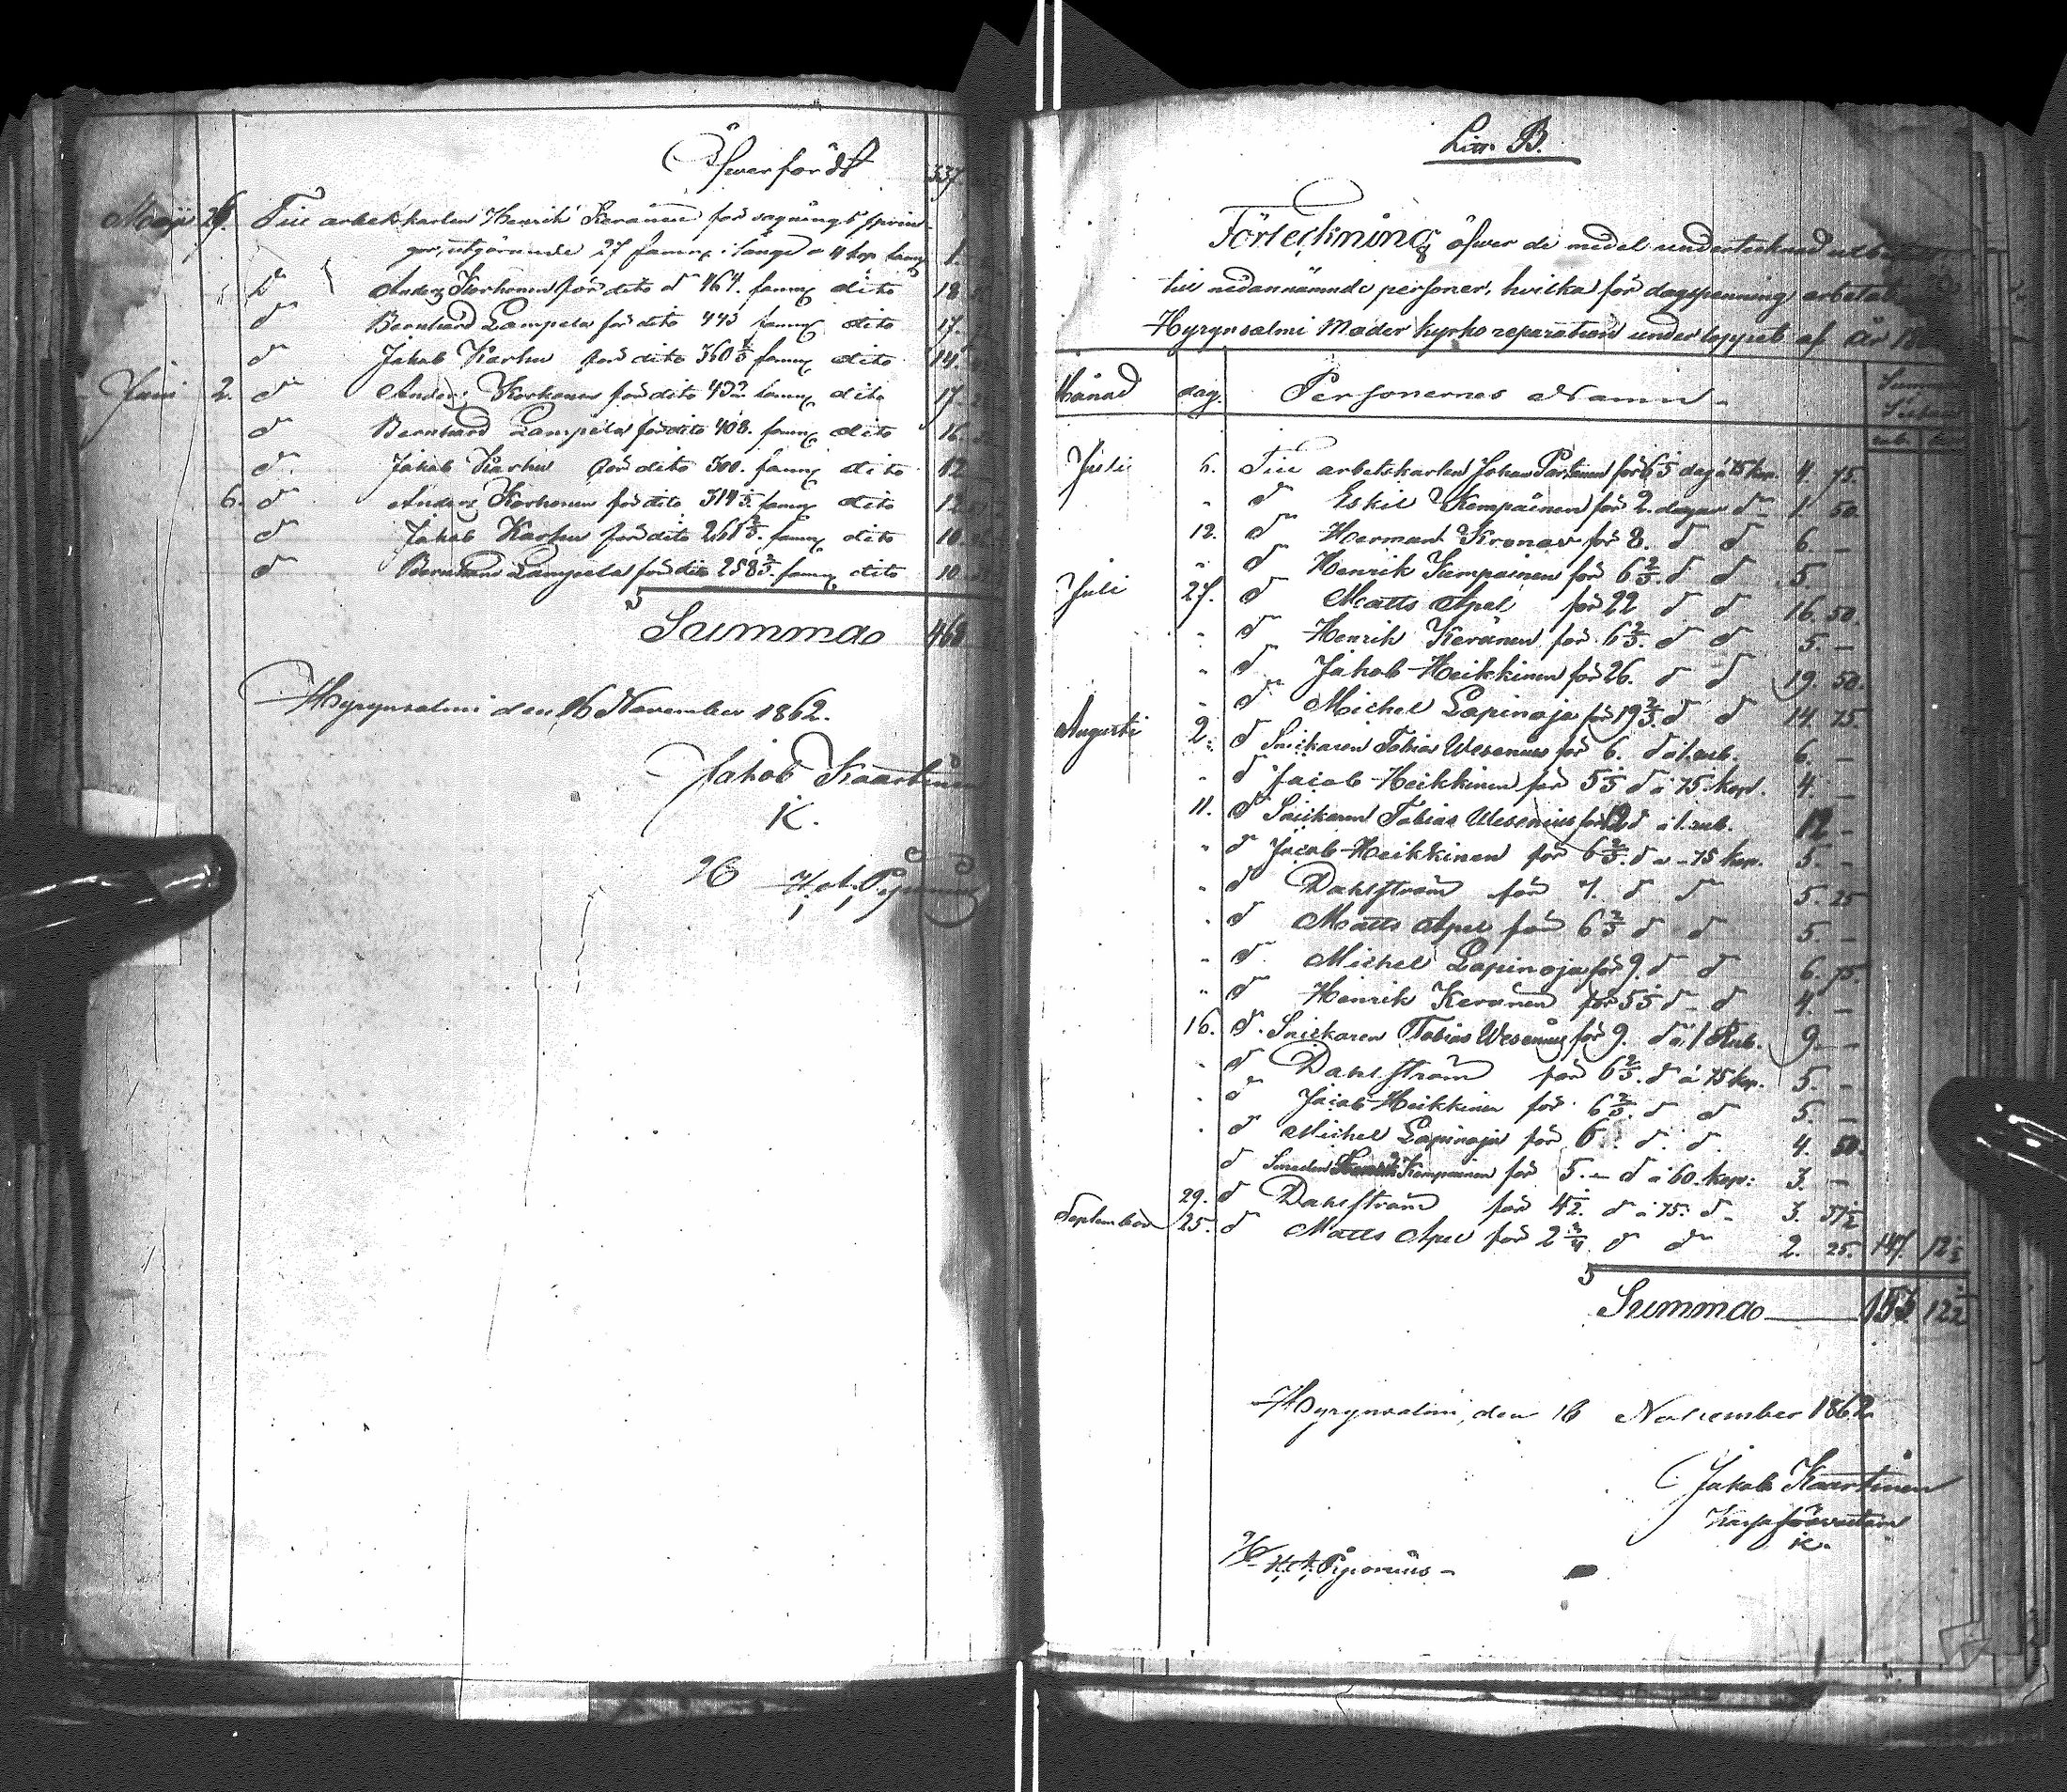 Öfverfördt 337.
Maji 26. Till arbetskarlen Henrik Keränen för sågning
gar, utgörande 27 famnar i längd a 4 kop. famn 1.
" d:o Anders Korhonen för dito d:o 464. famnar dito 18
d:o Bernhard Lampela för dito 443 famnar dito 17.
d:o Jakob Karhu för dito 360 2/3 famnar dito 14.
Juni 2. d:o Anders Korhonen för dito 432 famnar dito 17
d:o Bernhard Lampela för dito 408. famnar dito 16
d:o Jakob Karhu för dito 300. famnar dito 12
6. d:o Anders Korhonen för dito 314 famnar dito 12
d:o Jakob Karhu för dito 261 2/3. famnar dito 10
d:o Bernhard Lampela för dito 258 2/3. famnar dito 10
Summa 468
Hyrynsalmi den 16 November 1862.
Jakob Kaartinen
K.
Litt. B.
Förteckning öfwer de medel undertecknad
till nedannämnde personer, hvilka för dagspenning arbetat
Hyrynsalmi Moder kyrko reparation under loppet af År
Månad dag. Personernes Namn.
Summa
rub. kop.
Juli 6. Till arbetskarlen Johan Partanen för 6 1/3 dag á 75 kop. 4. 75.
" d:o Eskil Kempainen för 2. dagar d:o 1. 50.
12. d:o Herman Kronas för 8. d:o d:o 6. —
" d:o Henrik Kempainen för 6 2/3. d:o d:o 5
Juli 27. d:o Matts Apel för 22 d:o d:o 16. 50.
" d:o Henrik Keränen för 6 2/3. d:o d:o 5. —
" d:o Jakob Heikkinen för 26. d:o d:o 19. 50.
" d:o Michel Lapinoja för 19 2/3 d:o d:o 14. 75.
Augusti 2. d:o Snickaren Tobias Wesenius för 6. d:o á 1. rub. 6. —
" d:o Jacob Heikkinen för 5 1/3 d:o á 75. kop. 4. —
11. d:o Snickaren Tobias Wesenius för 12 d:o á 1. rub. 12 —
" d:o Jacob Heikkinen för 6 2/3. d:o a 75 kop. 5. —
" d:o Dahlström för 7. d:o d:o 5. 25
" d:o Matts Apel för 6 2/3 d:o d:o 5. —
" d:o Michel Lapinoja för 9. d:o d:o 6. 75.
" d:o Henrik Keränen för 5 1/3 d:o d:o 4. —
16. d:o Snickaren Tobias Wesenius för 9. d:o á 1 Rub. 9. —
" d:o Dahlström för 6 2/3. d:o á 75 kop. 5. —
" d:o Jacob Heikkinen för 6 2/3. d:o d:o 5. —
" d:o Michel Lapinoja för 6. d:o d:o 4. 50.
d:o Smeden Kempainen för 5. d:o á 60. kop: 3. —
29. d:o Dahlström för 4 1/2. d:o á 75. d:o 3. 37 1/2
September 25. d:o Matts Apel för 2 3/4. d:o d:o 2. 25. 147. 12 1/2
Summa 153 12 1/2
Hyrynsalmi, den 16 November 1862
Jakob Kaartinen
Kassaförvaltare
K.